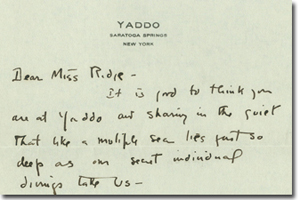 YADDO
SARATOGA SPRINGS
NEW YORK
Dear Miss Ridge -
It is good to think you
are at Yaddo and sharing in the quiet
that like a multiple sea lies just so
deep as our secret individual
divings take us -